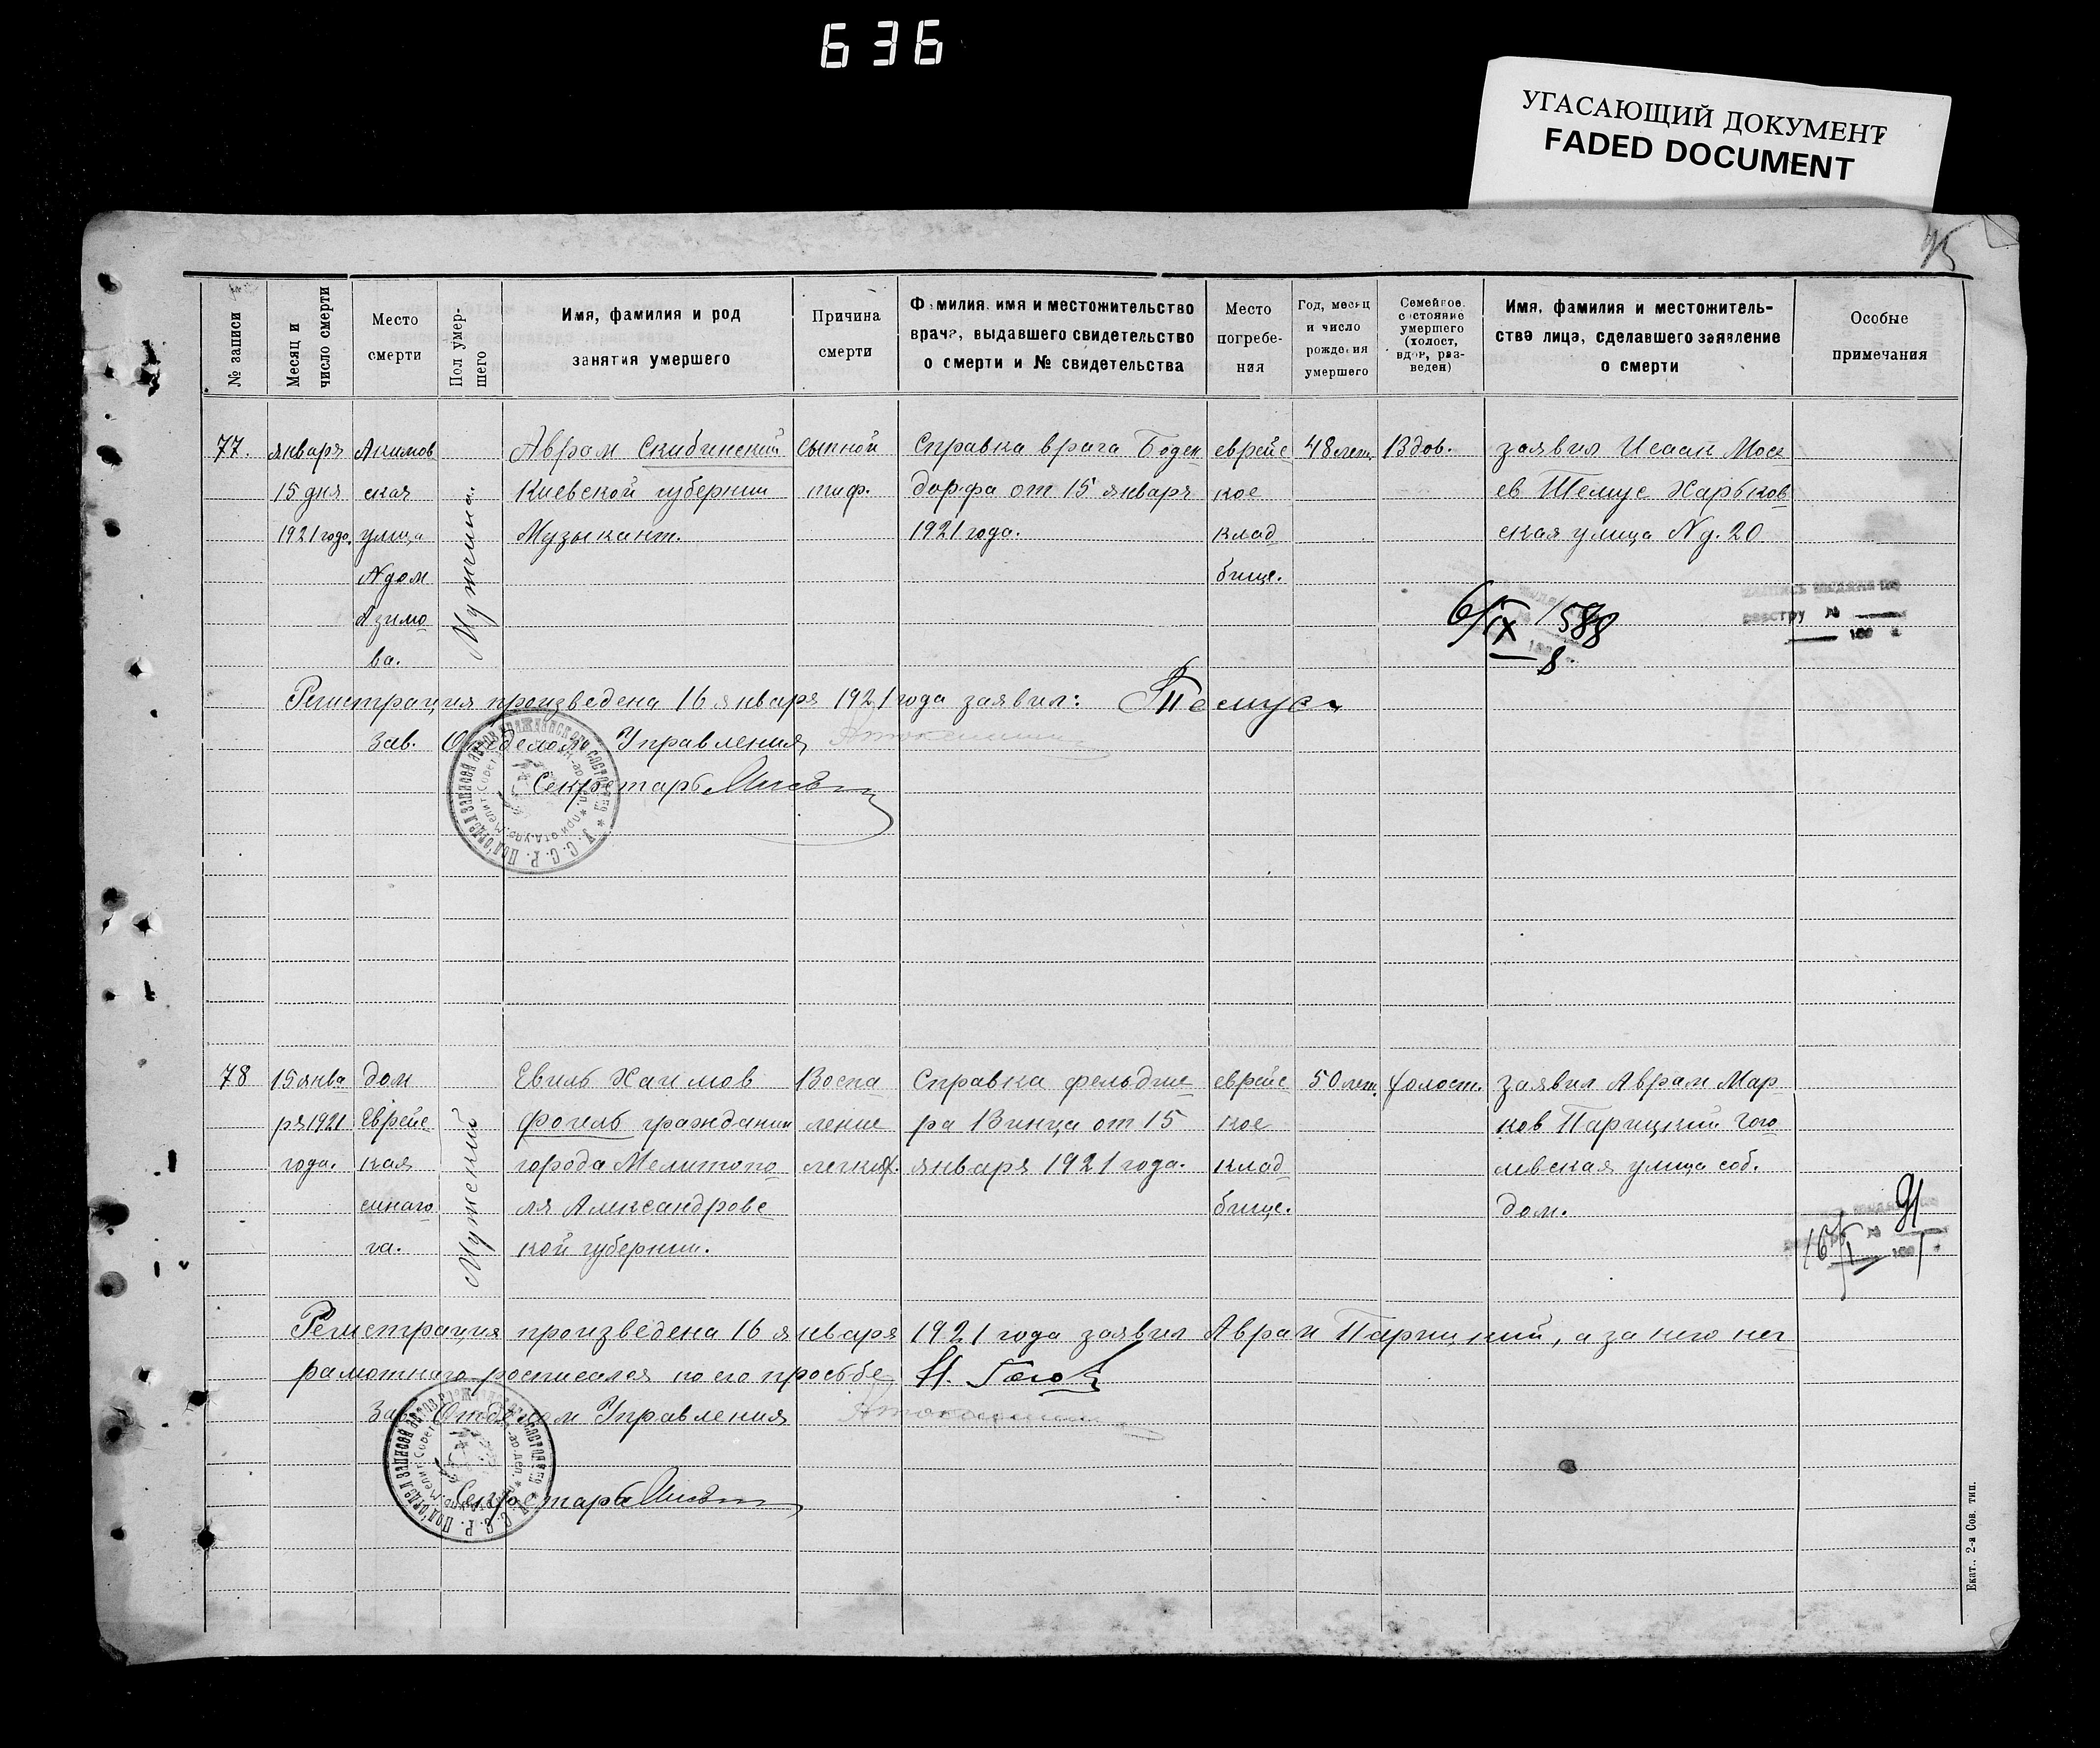 636
УГАСАЮЩИЙ ДОКУМЕНТ
FADED DOCUMENT
95
№ записи
Месяц и
число смерти
Место
смерти
Пол умер-
шего
Имя, фамилия и род
занятия умершего
Причина
смерти
Фамилия, имя и местожительство
врача, выдавшего свидетельство
о смерти и № свидетельства
Место
погребе-
ния
Год, месяц
и число
рождения
умершего
Семейное
состояние
умершего
(холост,
вдов, раз-
веден)
Имя, фамилия и местожитель-
ства лица, сделавшего заявление
о смерти
Особые
примечания
77.
января
15 дня
1921 года.
Акимов
ская
улица
№ дом
Азимо
ва.
Мужчина.
Аврам Скибинский
Киевской губернии
Музыкант.
сыпной
тиф.
Справка врача Боден
дорфа от 15 января
1921 года.
еврейс
кое
клад
бище.
48 лет.
Вдов.
заявил Исаак Моис
ев Шемус Харьков
ская улица № д. 20
6/IX 1588
8
запись выдана по
реестру №
Регистрация произведена 16 января 1921 года заявил: Шемус
Зав. Отделом Управления
Секретарь
78
15 янва
ря 1921
года.
дом
еврейс
кая
синаго
га.
Мужский
Евиль Хаимов
Фогель гражданин
города Мелитопо
ля Александровс
кой губернии.
Воспа
ление
легких.
Справка фельдше
ра Винца от 15
января 1921 года.
еврейс
кое
клад
бище.
50 лет.
холост.
заявил Аврам Мар
ков Парицкий Гого
левская улица соб.
дом.
91
16/I
Регистрация произведена 16 января 1921 года заявил Аврам Парицкий, а за него нег
рамотнаго росписался по его просьбе
Зав. Отделом Управления
Секретарь
Екат., 2-я Сов. тип.